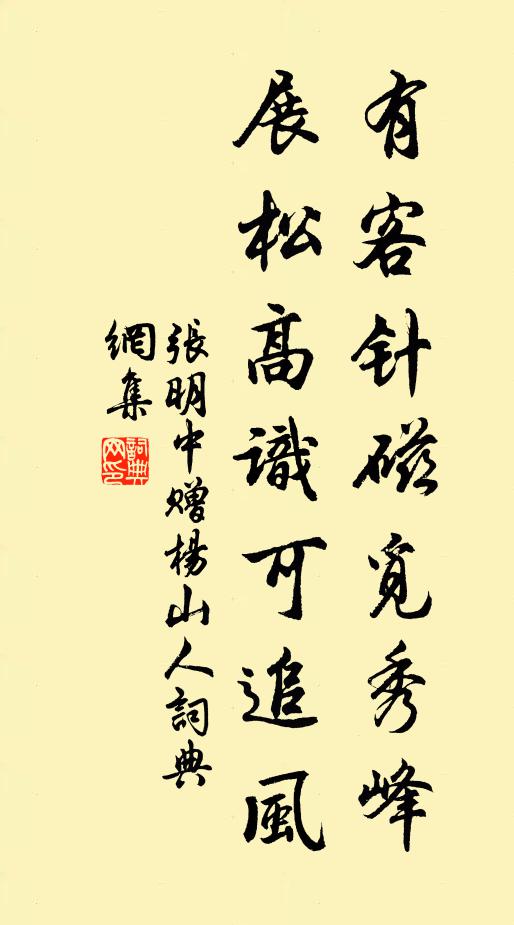 有客针磁覓秀峰
展松高識可追風
張明中赠楊山人詞典
網集
詞典
网印